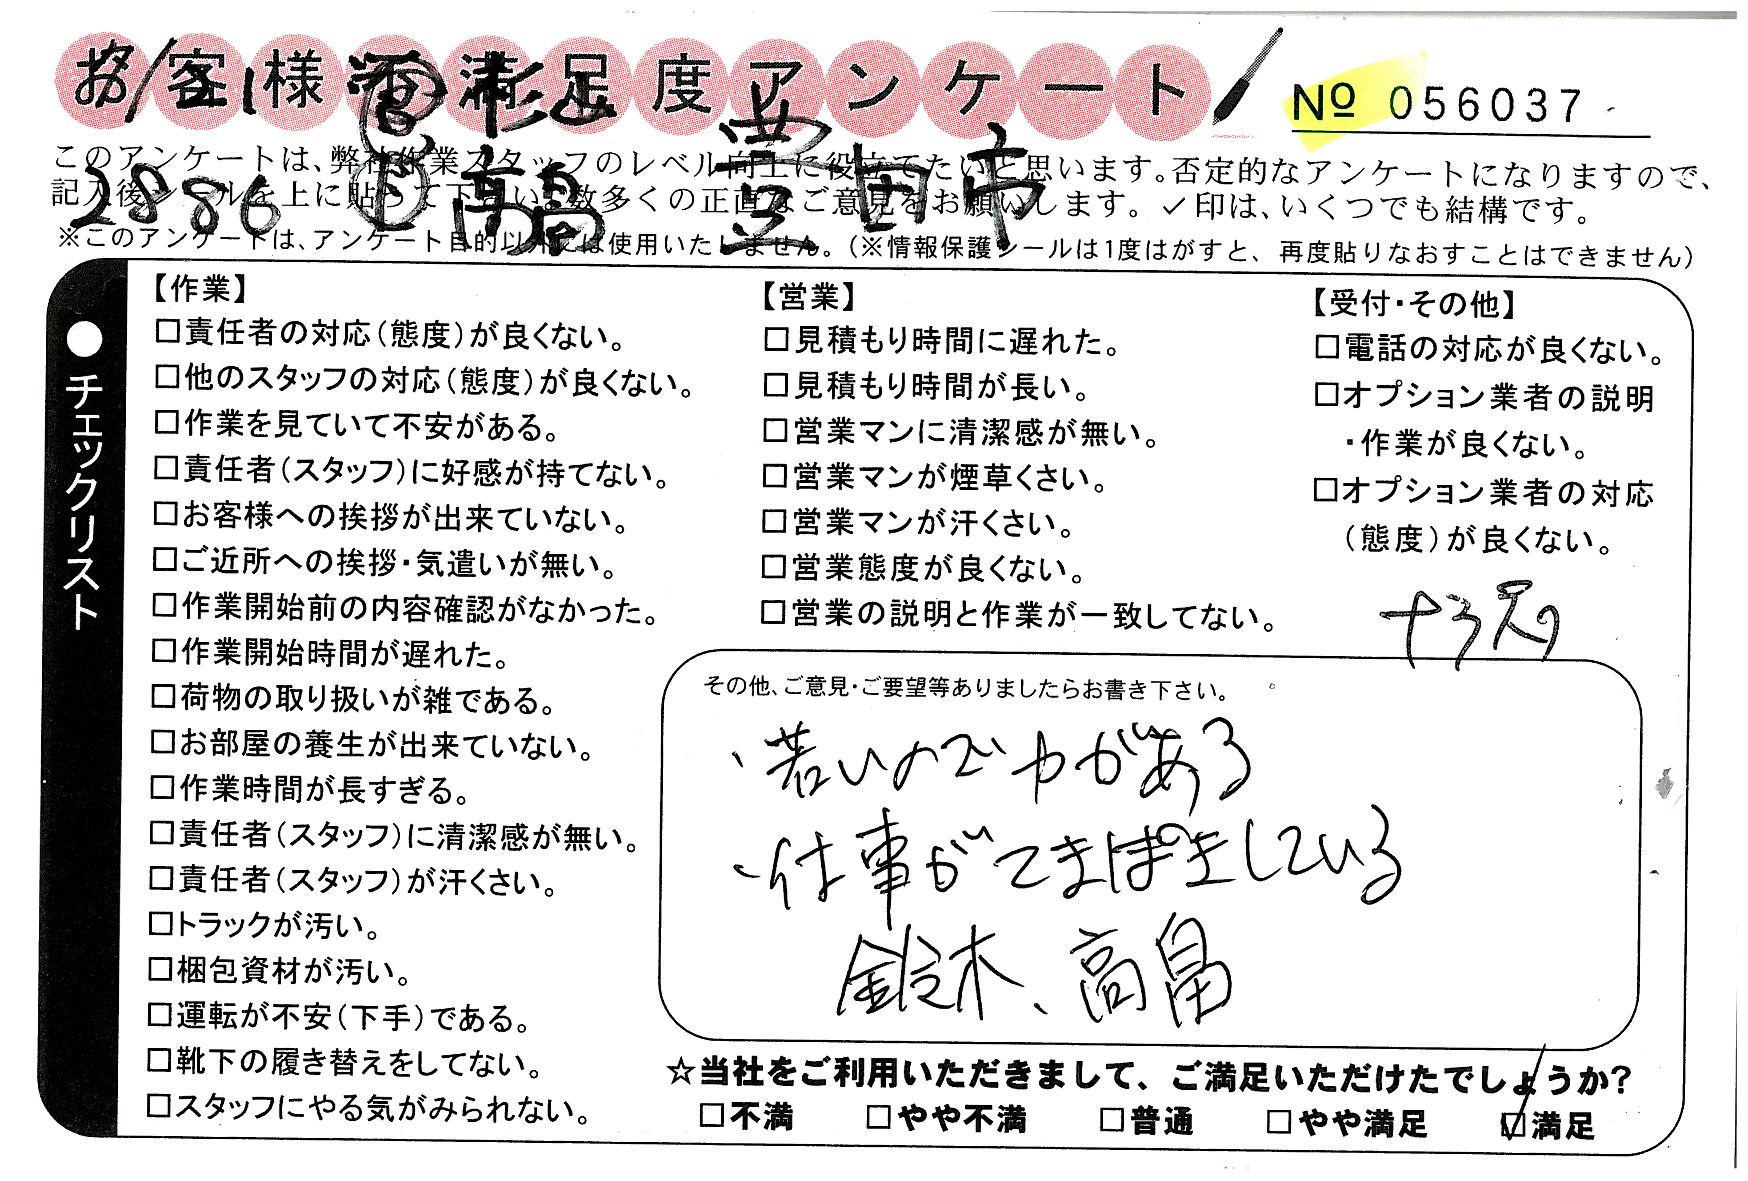 お客様の満足度アンケート
№ 056037
このアンケートは、弊社作業スタッフのレベル向上に役立てたいと思います。否定的なアンケートになりますので、
記入後シールを上に貼って下さい。数多くの正直なご意見をお願いします。✓印は、いくつでも結構です。
※このアンケートは、アンケート目的以外には使用いたしません。(※情報保護シールは1度はがすと、再度貼りなおすことはできません)
2886 高畠 豊田市
●チェックリスト
【作業】
□責任者の対応(態度)が良くない。
□他のスタッフの対応(態度)が良くない。
□作業を見ていて不安がある。
□責任者(スタッフ)に好感が持てない。
□お客様への挨拶が出来ていない。
□ご近所への挨拶・気遣いが無い。
□作業開始前の内容確認がなかった。
□作業開始時間が遅れた。
□荷物の取り扱いが雑である。
□お部屋の養生が出来ていない。
□作業時間が長すぎる。
□責任者(スタッフ)に清潔感が無い。
□責任者(スタッフ)が汗くさい。
□トラックが汚い。
□梱包資材が汚い。
□運転が不安(下手)である。
□靴下の履き替えをしてない。
□スタッフにやる気がみられない。
【営業】
□見積もり時間に遅れた。
□見積もり時間が長い。
□営業マンに清潔感が無い。
□営業マンが煙草くさい。
□営業マンが汗くさい。
□営業態度が良くない。
□営業の説明と作業が一致してない。
【受付・その他】
□電話の対応が良くない。
□オプション業者の説明
・作業が良くない。
□オプション業者の対応
(態度)が良くない。
その他、ご意見・ご要望等ありましたらお書き下さい。
・若いので力がある
・仕事がてきぱきしている
鈴木、高畠
☆当社をご利用いただきまして、ご満足いただけたでしょうか?
□不満 □やや不満 □普通 □やや満足 ☑満足